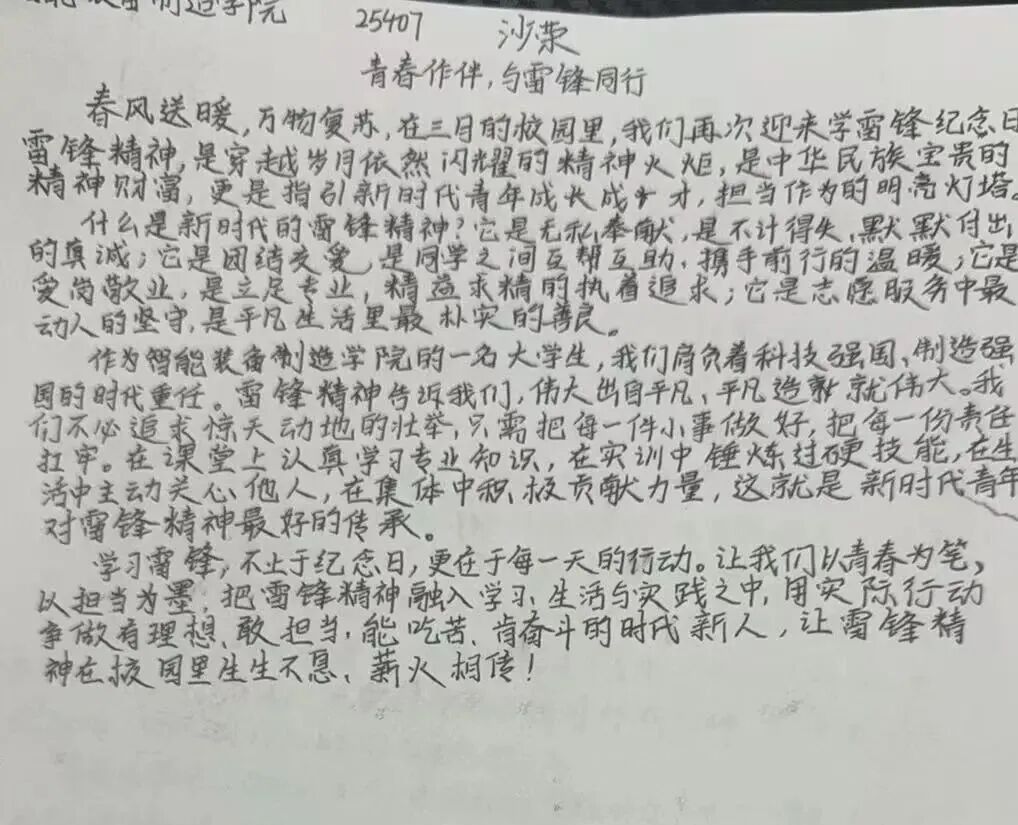 制造学院 25407 沙荣
青春作伴,与雷锋同行
春风送暖,万物复苏,在三月的校园里,我们再次迎来学雷锋纪念日
雷锋精神,是穿越岁月依然闪耀的精神火炬,是中华民族宝贵的
精神财富,更是指引新时代青年成长成才,担当作为的明亮灯塔。
什么是新时代的雷锋精神?它是无私奉献,是不计得失、默默付出
的真诚;它是团结友爱,是同学之间互帮互助、携手前行的温暖;它是
爱岗敬业,是立足专业,精益求精的执着追求;它是志愿服务中最
动人的坚守,是平凡生活里最朴实的善良。
作为智能装备制造学院的一名大学生,我们肩负着科技强国、制造强
国的时代重任。雷锋精神告诉我们,伟大出自平凡、平凡造就伟大。我
们不必追求惊天动地的壮举,只需把每一件小事做好,把每一份责任
扛牢。在课堂上认真学习专业知识,在实训中锤炼过硬技能,在生
活中主动关心他人,在集体中积极贡献力量,这就是新时代青年
对雷锋精神最好的传承。
学习雷锋,不止于纪念日,更在于每一天的行动。让我们以青春为笔,
以担当为墨,把雷锋精神融入学习、生活与实践之中,用实际行动
争做有理想、敢担当、能吃苦、肯奋斗的时代新人,让雷锋精
神在校园里生生不息、薪火相传!